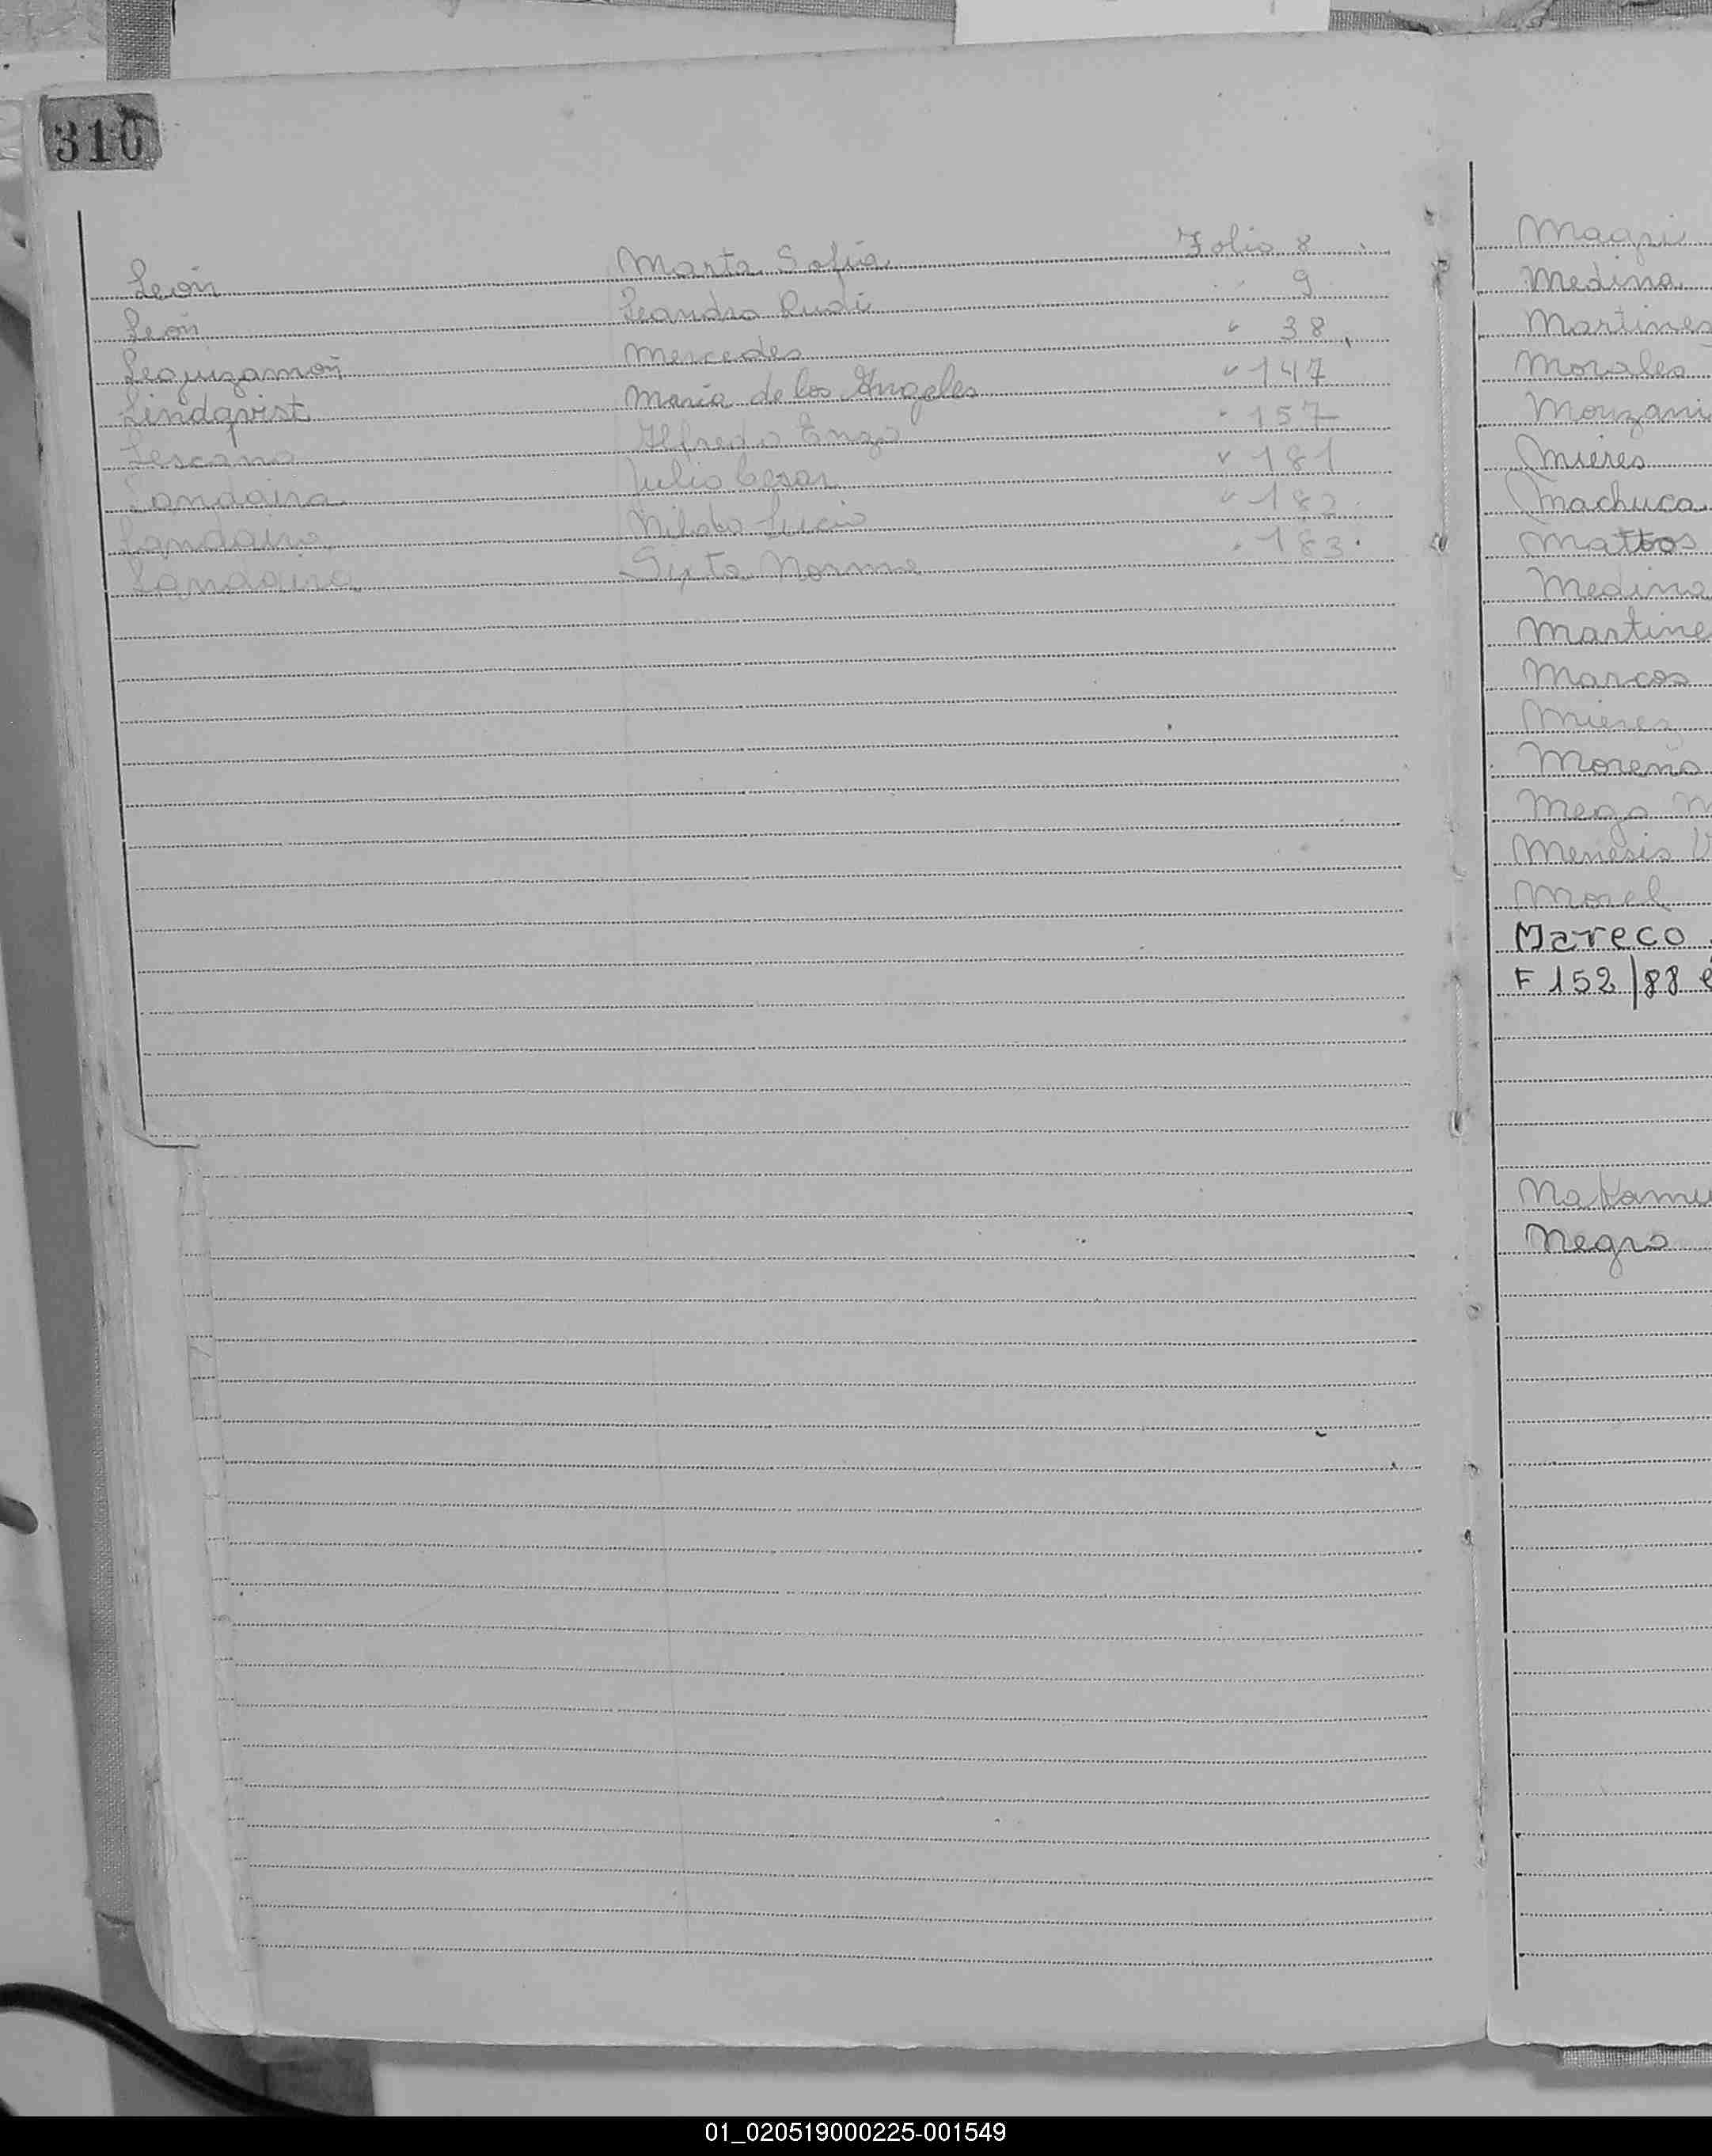 310
León Marta Sofia Folio 8
León Leandro Rudi " 9
Leguizamón Mercedes " 38
Lindqvist Maria de los Angeles " 147
Lescano Alfredo Enzo " 157
Landaira Julio Cesar " 181
Landaira Lucio " 182
Landaira Sixta Norma " 183
Magri
Medina
Martines
Morales
Monzani
Mieres
Machuca
Mattos
Medina
Martine
Marcos
Mieres
Moreno
Mego
Menesis V
Morel
Mareco
F 152/88
Nakamu
Negro
01_020519000225-001549